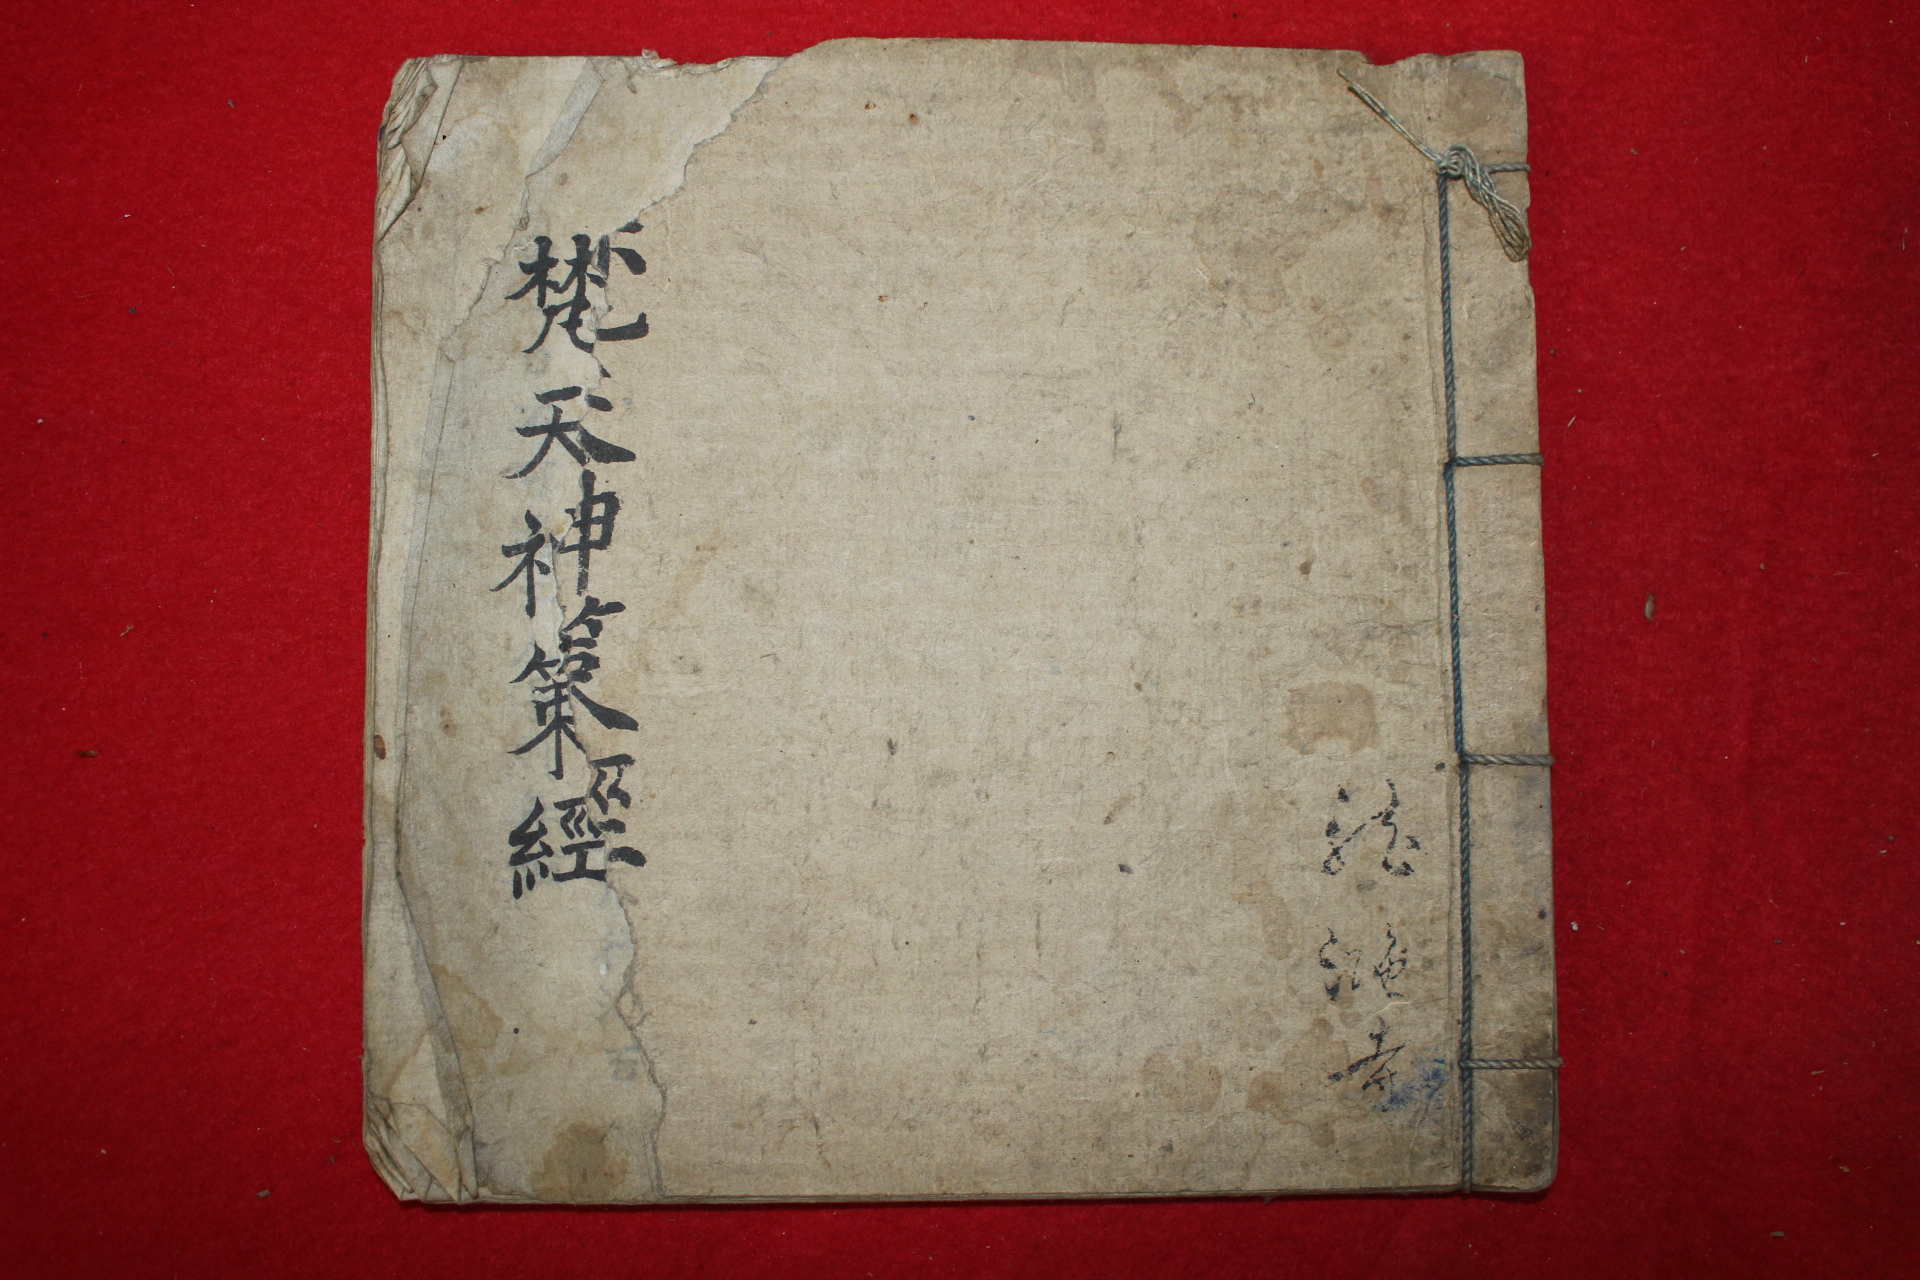 寺
梵天神策經